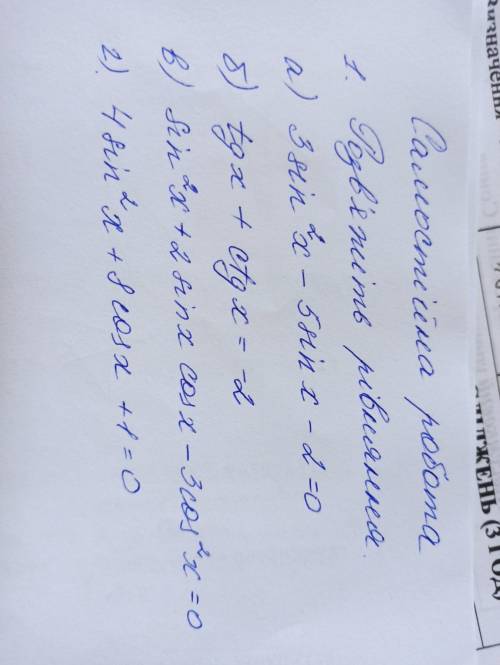 Самостійна робота
1. Розв'яжіть рівняння.
а) 3 sin²x - 5 sin x - 2 = 0
б) tg x + ctg x = -2
в) sin²x + 2 sin x cos x - 3 cos²x = 0
г) 4 sin²x + 8 cos x + 1 = 0